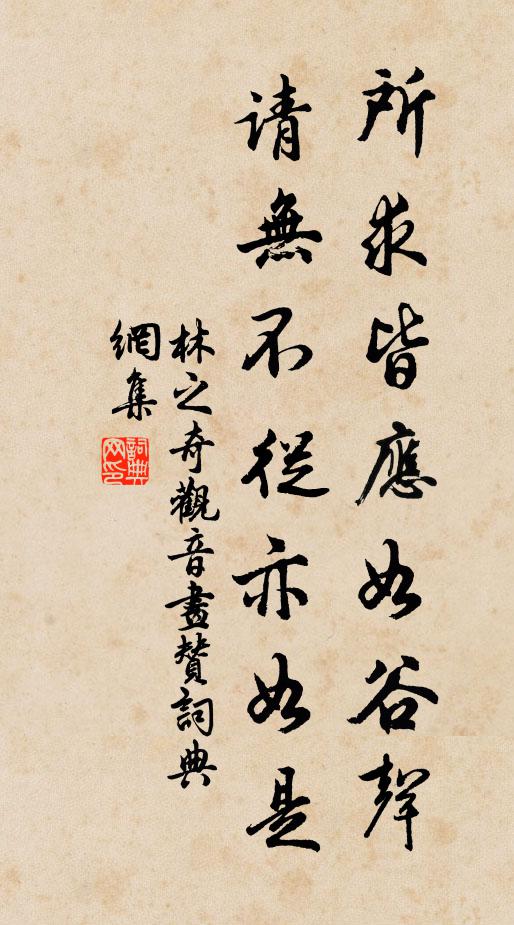 所求皆應如谷聲
請無不從亦如是
林之奇觀音畫贊詞典
網集
詞典網印